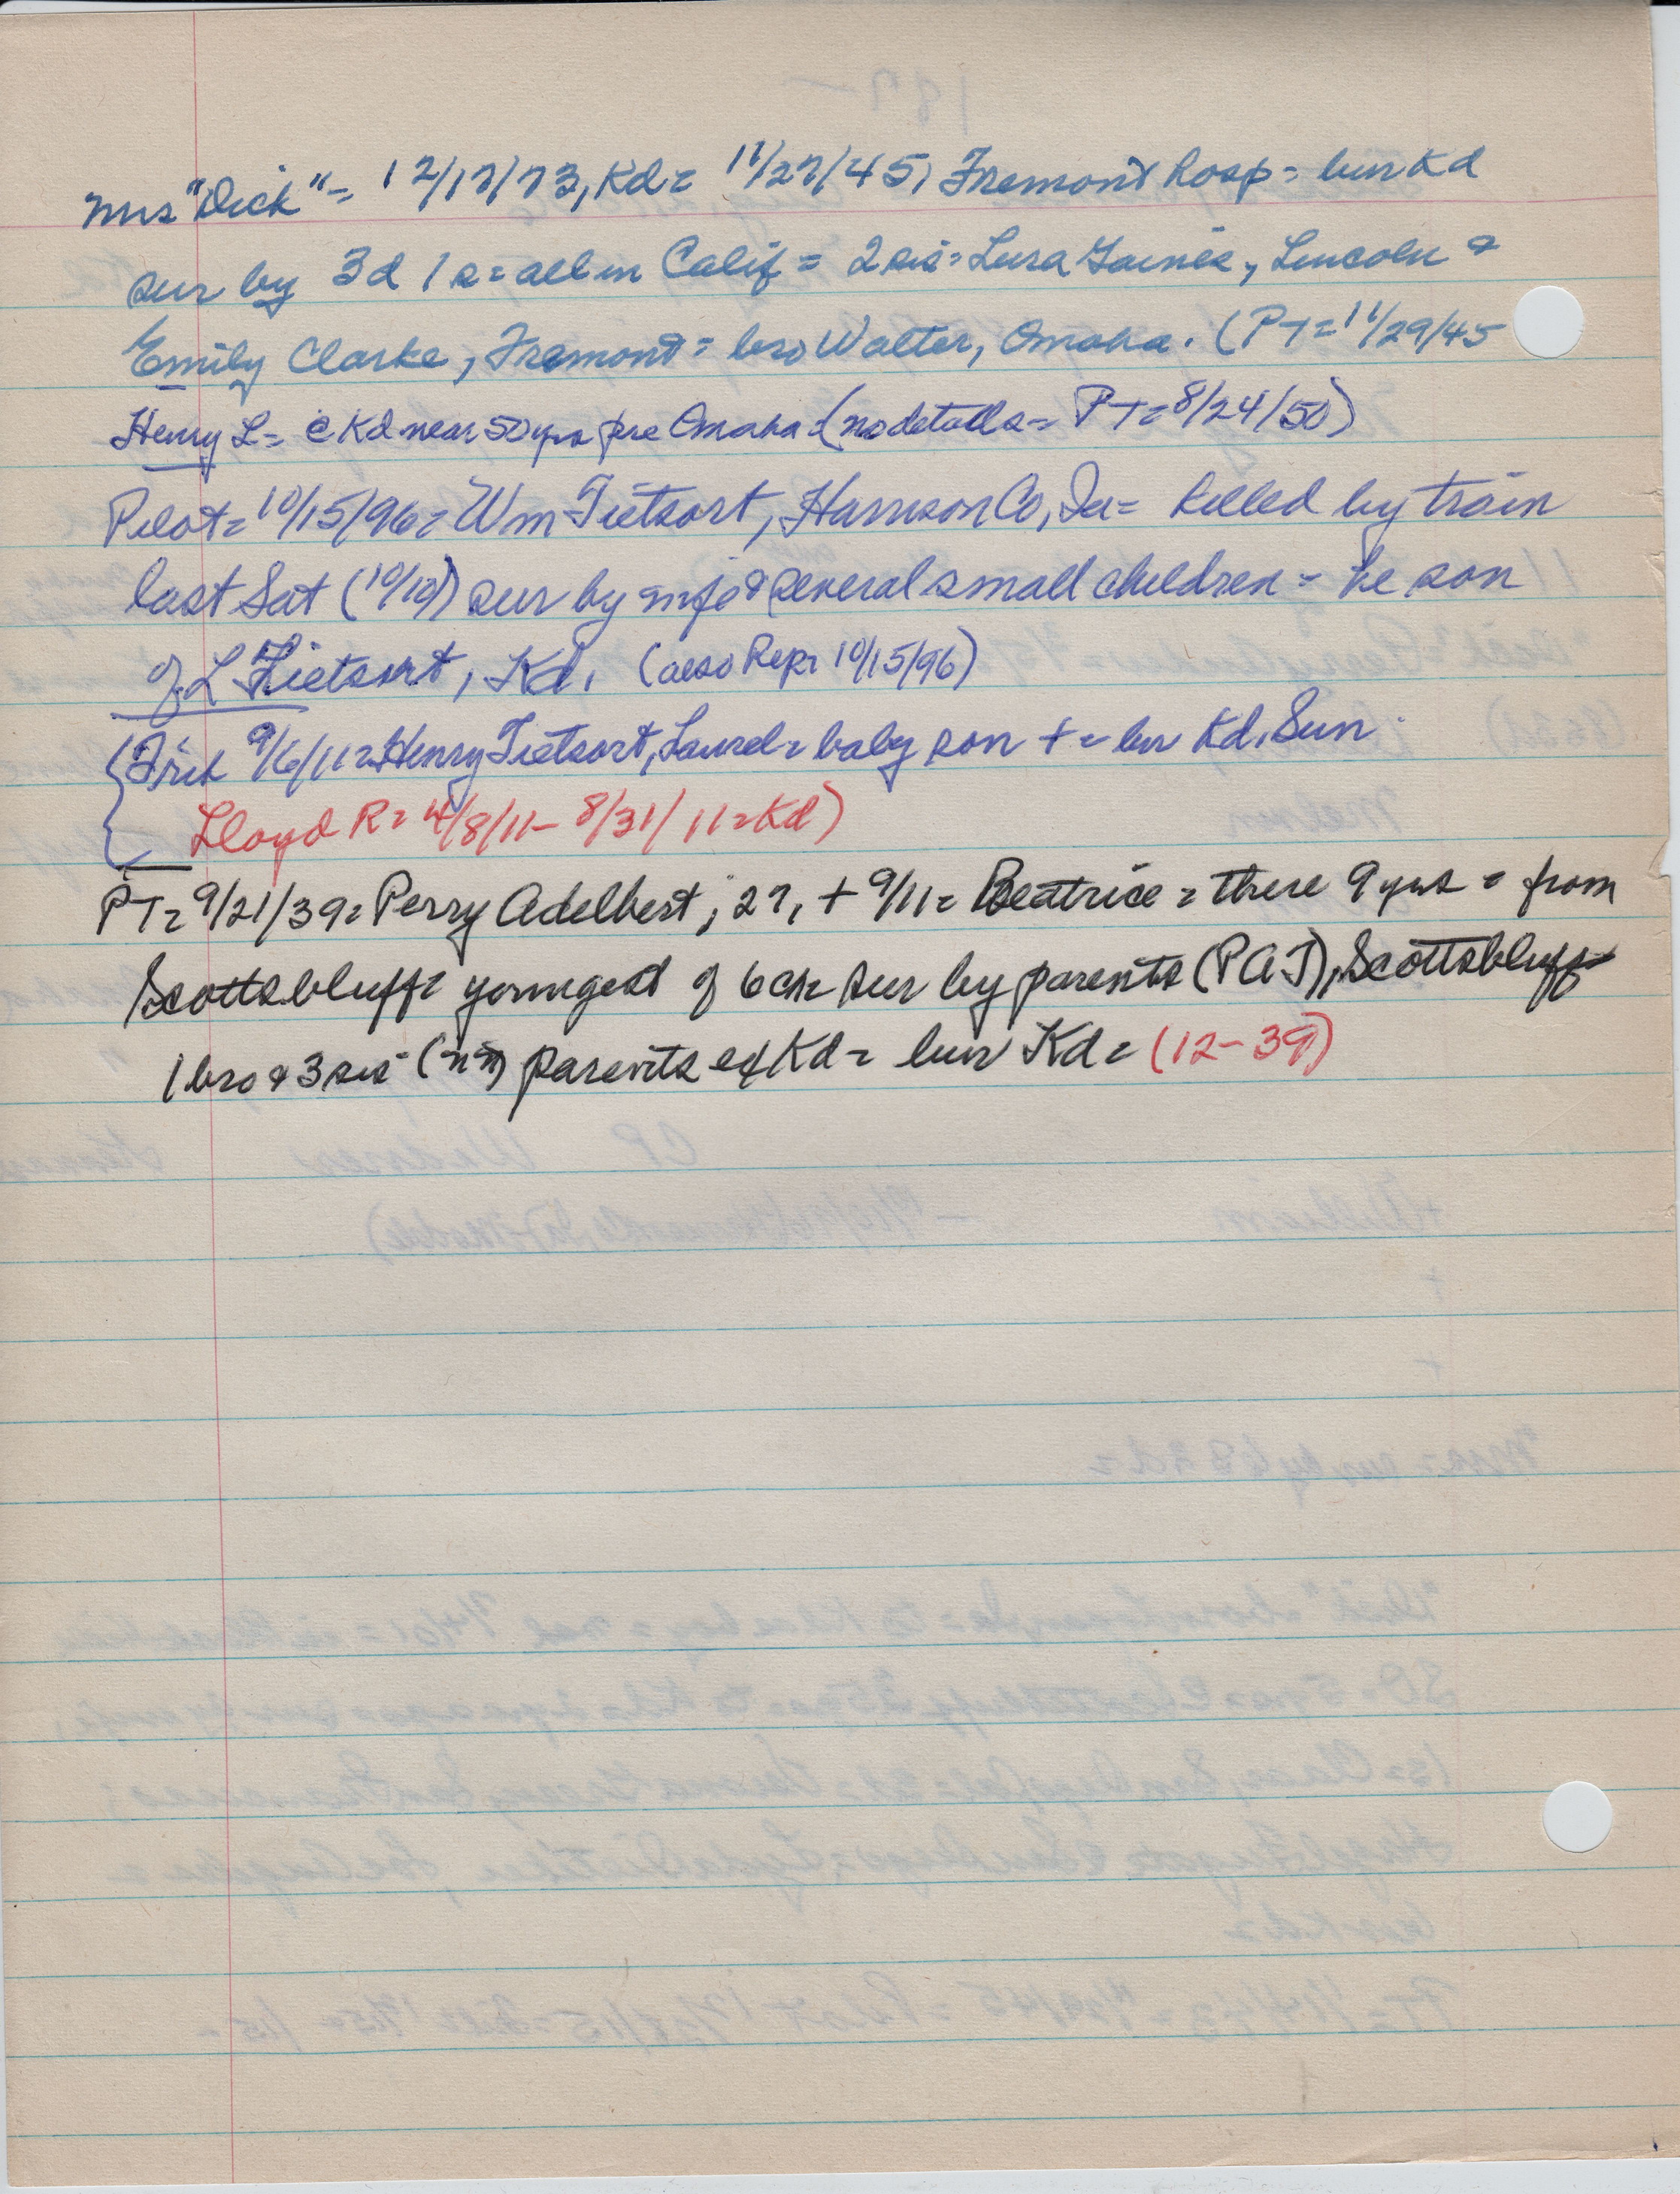 Mrs "Dick" = 12/17/73, Kd = 11/27/45, Fremont hosp = bur Kd
sur by 3d 1s = all in Calif = 2 sis = Lura Gaines, Lincoln &
Emily Clarke, Fremont = bro Walter, Omaha. (PT = 11/29/45
Henry L = c Kd near 50 yrs pre Omaha = (no details = PT = 8/24/50)
Pilot = 10/15/96 = Wm Tietsort, Harrison Co, Ia = killed by train
last Sat (10/10) sur by wife & several small children = he son
of L Tietsort, Kd. (also Repr 10/15/96)
{Trib 9/6/11 = Henry Tietsort, Laurel = baby son + = bur Kd, Sun
Lloyd R = 4/8/11 - 8/31/11 = Kd)
PT = 9/21/39 = Perry Adelbert, 27, + 9/11 = Beatrice = there 9 yrs = from
Scottsbluff = youngest of 6 ch = sur by parents (PAT), Scottsbluff
1 bro & 3 sis (nn) parents of Kd = bur Kd = (12-39)